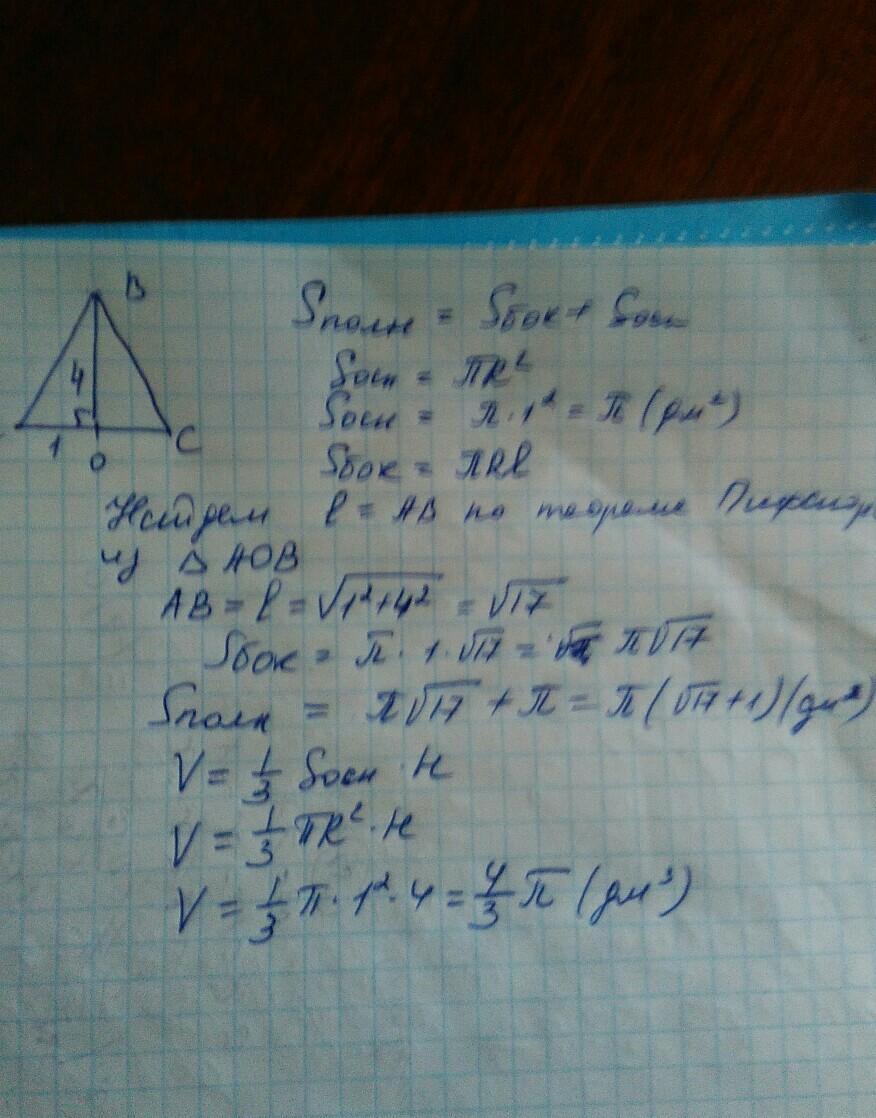 B
4
1
O
C
Sполн = Sбок + Sосн
Sосн = πR²
Sосн = π·1² = π (дм²)
Sбок = πRl
Найдем l = AB по теореме
из △AOB
AB = l = √(1²+4²) = √17
Sбок = π·1·√17 = π√17
Sполн = π√17 + π = π(√17+1)(дм²)
V = 1/3 Sосн · H
V = 1/3 πR² · H
V = 1/3 π·1²·4 = 4/3 π (дм³)